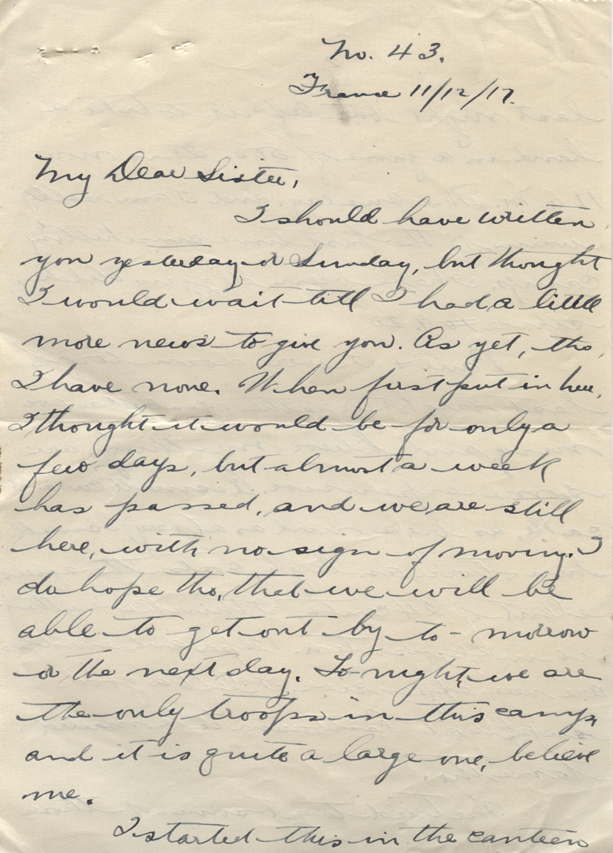 No. 43.
France 11/12/17.
My Dear Sister,
I should have written
you yesterday or Sunday, but thought
I would wait till I had a little
more news to give you. As yet, tho,
I have none. When first put in here,
I thought it would be for only a
few days, but almost a week
has passed, and we are still
here, with no sign of moving. I
do hope tho, that we will be
able to get out by to-morrow
or the next day. To-night, we are
the only troops in this camp,
and it is quite a large one, believe
me.
I started this in the canteen